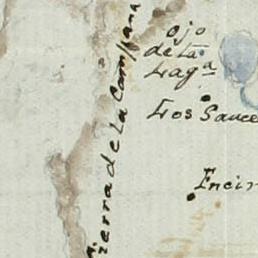 Ojo
de la
Fraga
Los Sauce
Encin
Sierra de la Campana